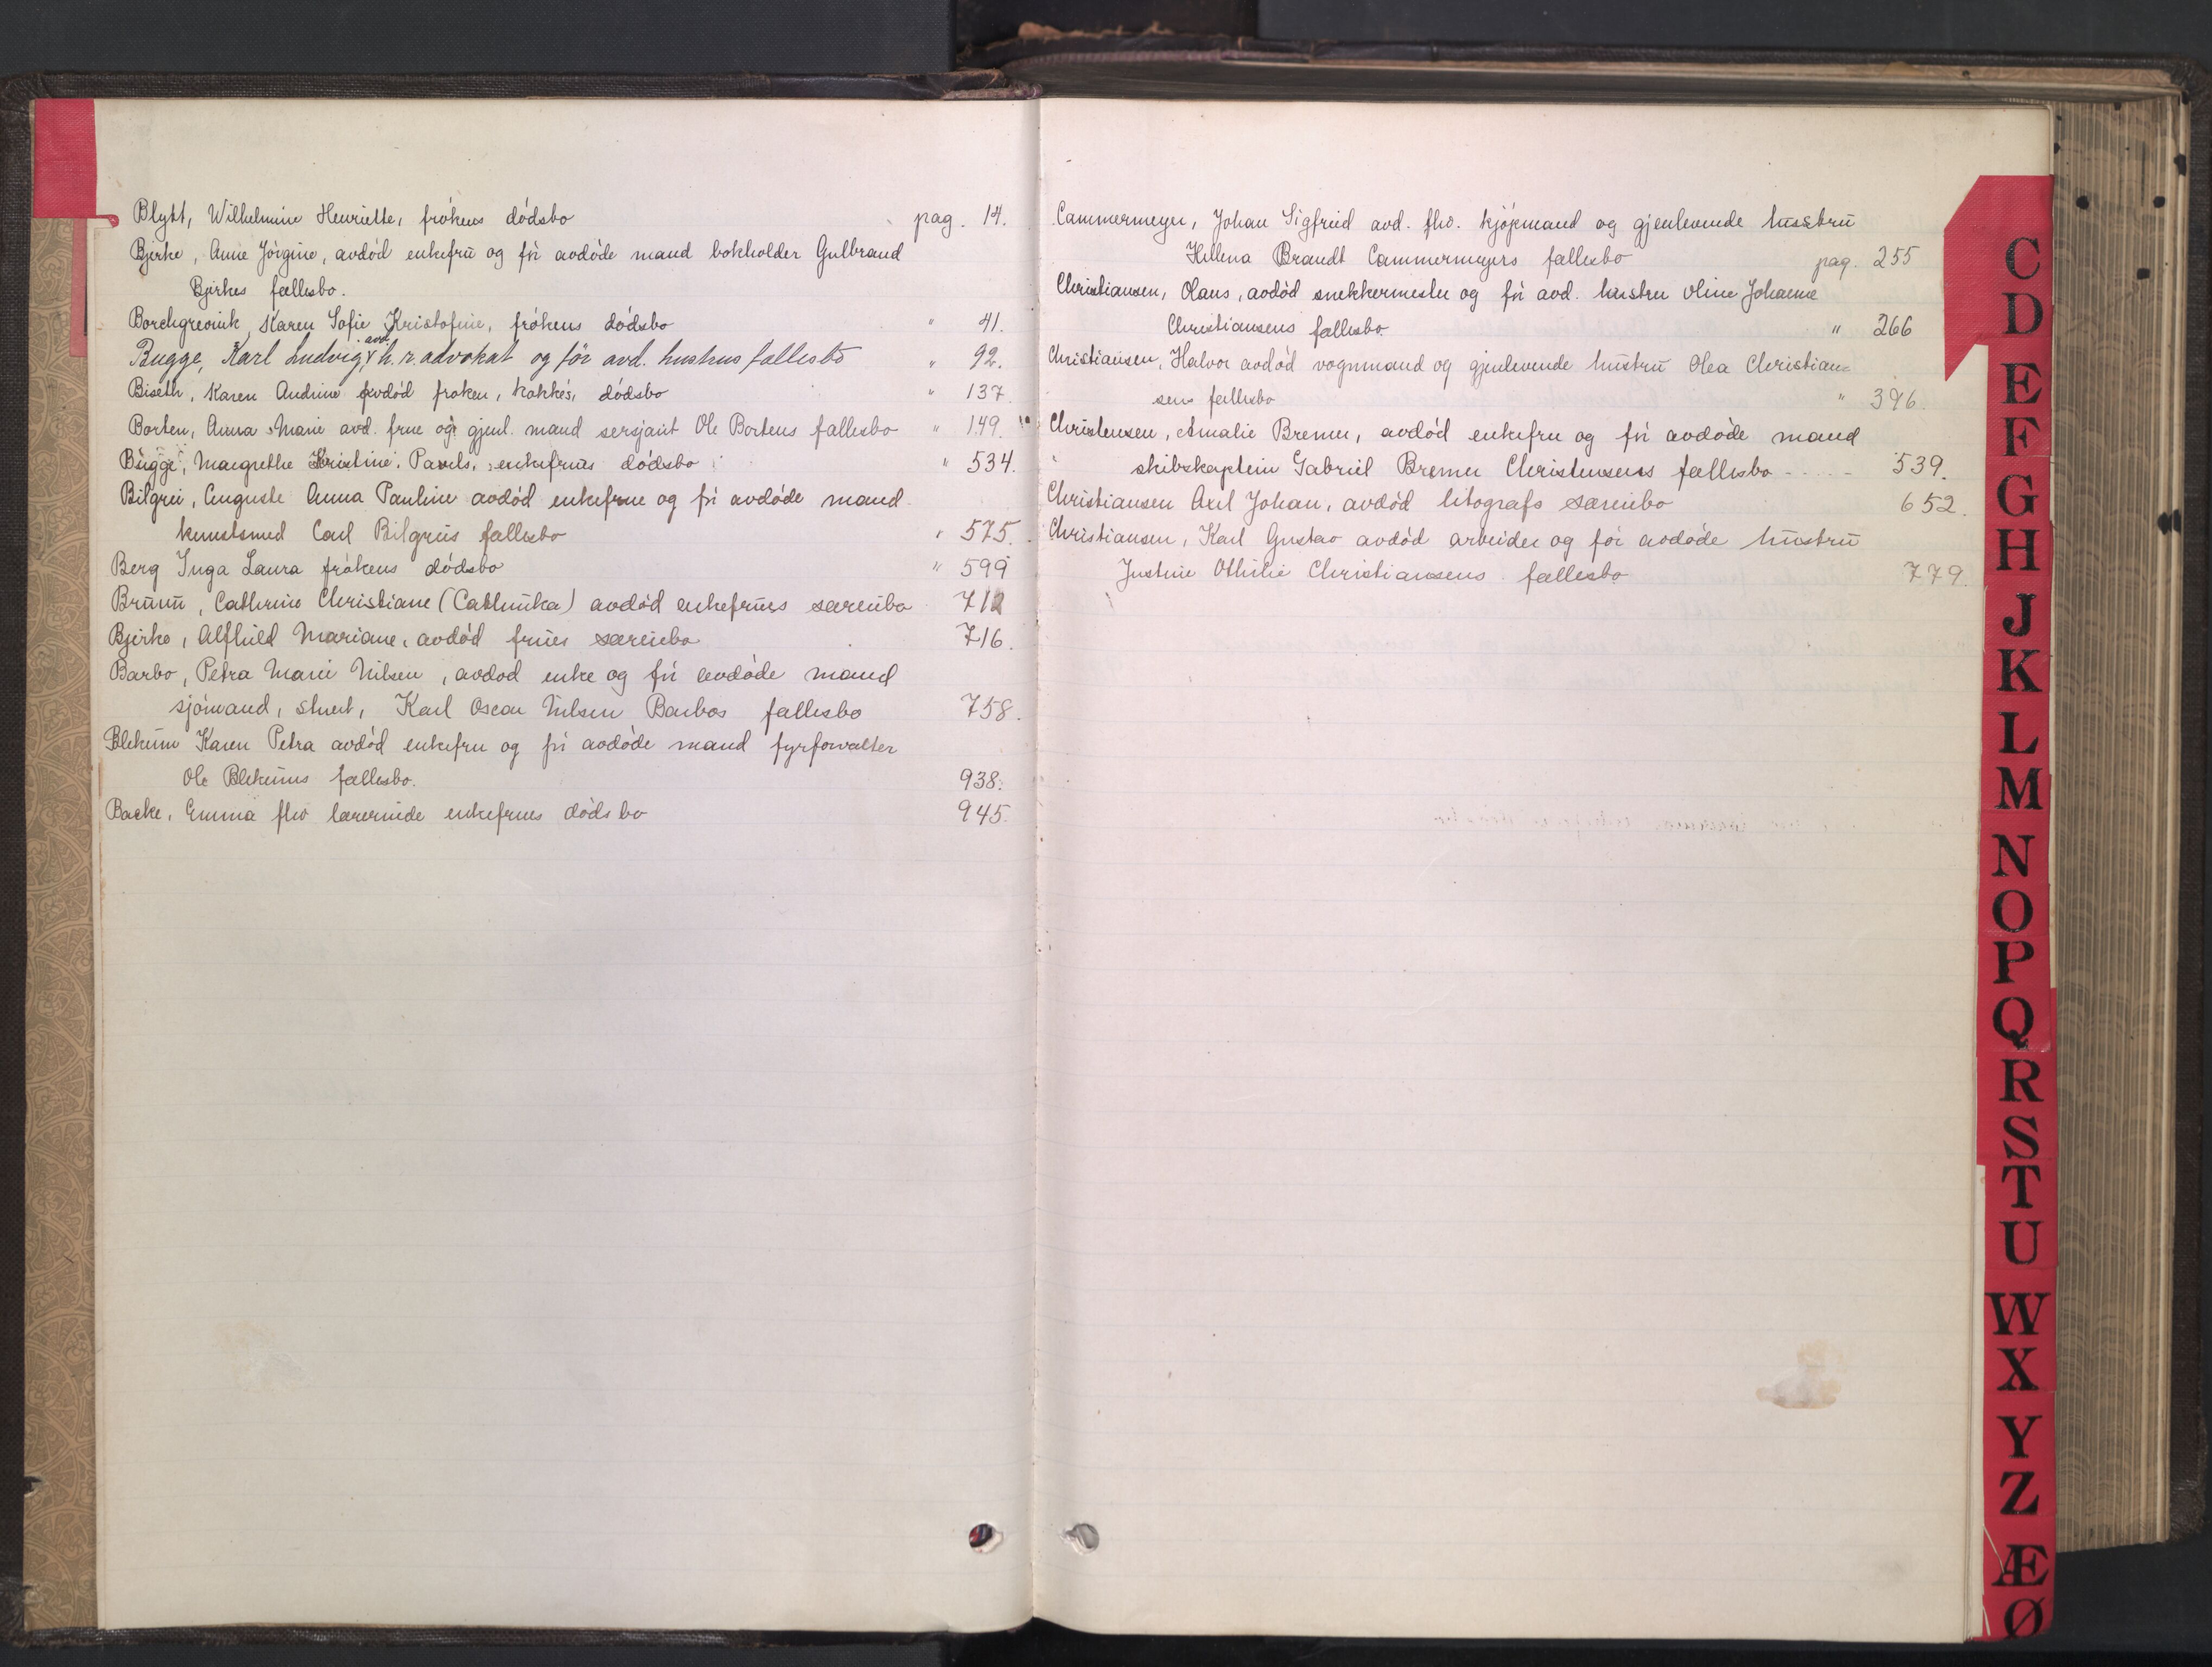 Blytt, Wilhelmine Henriette, frøkens dødsbo pag. 14.
Bjerke, Anne Jørgine, avdød enkefru og før avdøde mand bokholder Gulbrand
Bjerkes fællesbo.
Borchgrevink, Karen Sofie Kristofine, frøkens dødsbo " 41.
Bugge, Karl Ludvig, avd. h.r.advokat og før avd. hustrus fællesbo " 92.
Biseth, Karen Andrine avdød frøken, kokkes, dødsbo " 137.
Borten, Anna Marie avd. frue og gjenl. mand sersjant Ole Bortens fællesbo " 149.
Bugge, Margrethe Kristine Pavels, enkefrues dødsbo " 534.
Bilgrei, Auguste Anna Pauline avdød enkefrue og før avdøde mand
kunstsmed Carl Bilgreis fællesbo " 575.
Berg Inga Laura frøkens dødsbo " 599
Bruun, Cathrine Christiane (Cathinka) avdød enkefrues særeiebo 712
Bjerke, Alfhild Mariane, avdød frues særeiebo 716.
Barbo, Petra Marie Nilsen, avdød enke og før avdøde mand
sjømand, stuert, Karl Oscar Nilsen Barbos fællesbo 758.
Blekum Karen Petra avdød enkefru og før avdøde mand fyrforvalter
Ole Blekums fællesbo. 938.
Backe, Emma fhv lærerinde enkefrues dødsbo 945.
Cammermeyer, Johan Sigfried avd. fhv. kjøpmand og gjenlevende hustru
Helena Brandt Cammermeyers fællesbo pag. 255
Christiansen, Olaus, avdød snekkermester og før avd. hustru Oline Johanne
Christiansens fællesbo " 266
Christiansen, Halvor avdød vognmand og gjenlevende hustru Olea Christian=
sens fællesbo " 396.
Christensen, Amalie Bremer, avdød enkefru og før avdøde mand
skibskaptein Gabriel Bremer Christensens fællesbo - - - - - 539.
Christiansen Axel Johan, avdød litografs særeiebo 652.
Christiansen, Karl Gustav avdød arbeider og før avdøde hustru
Justine Othilie Christiansens fællesbo 779.
C
D
E
F
G
H
J
K
L
M
N
O
P
Q
R
S
T
U
W
X
Y
Z
Æ
Ø